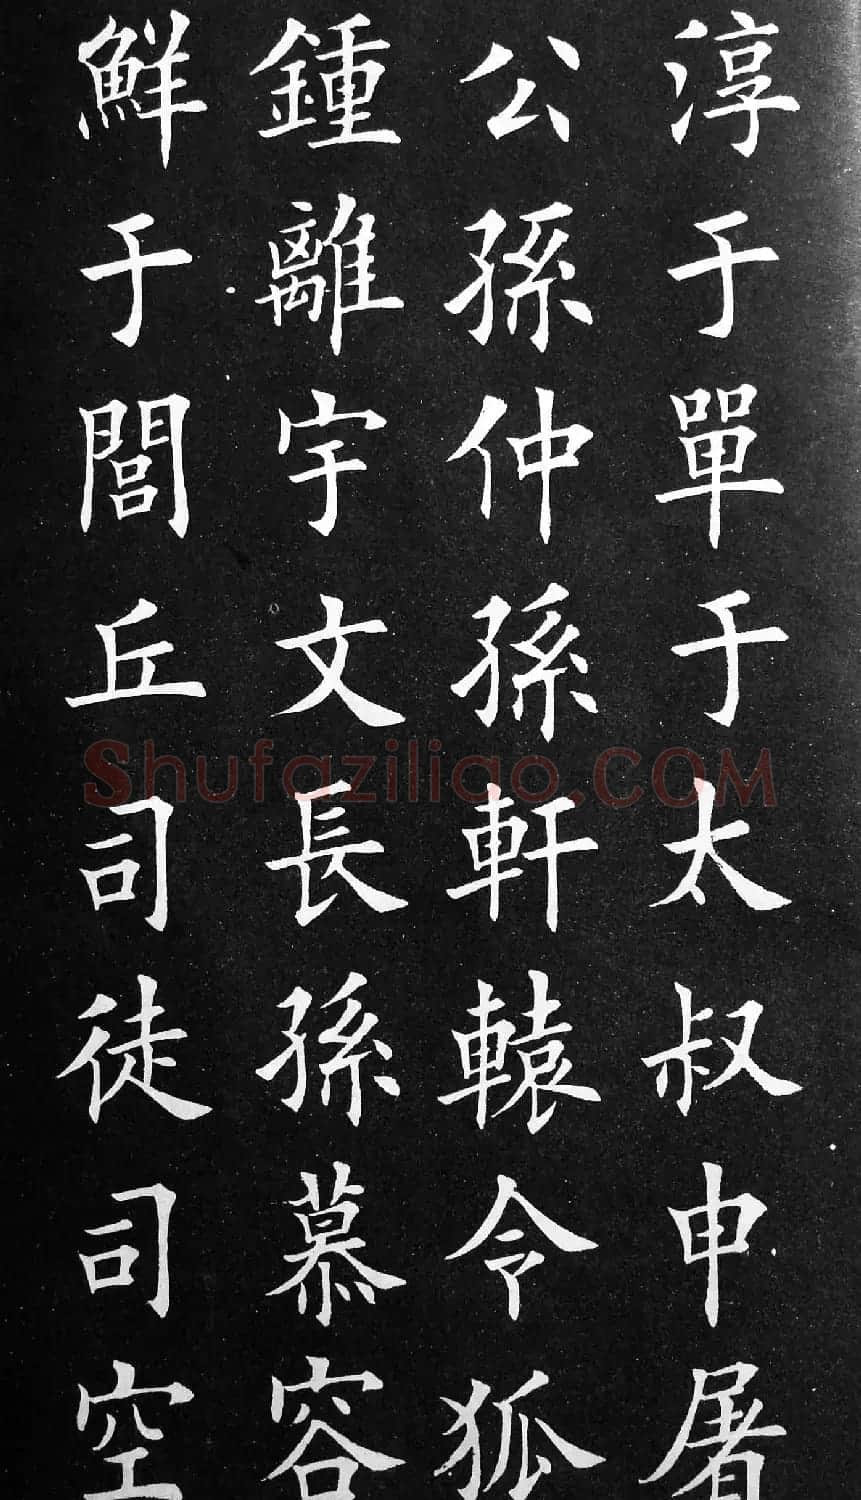 淳于單于太叔申屠
公孫仲孫軒轅令狐
鍾離宇文長孫慕容
鮮于閭丘司徒司空
Shufaziliao.COM